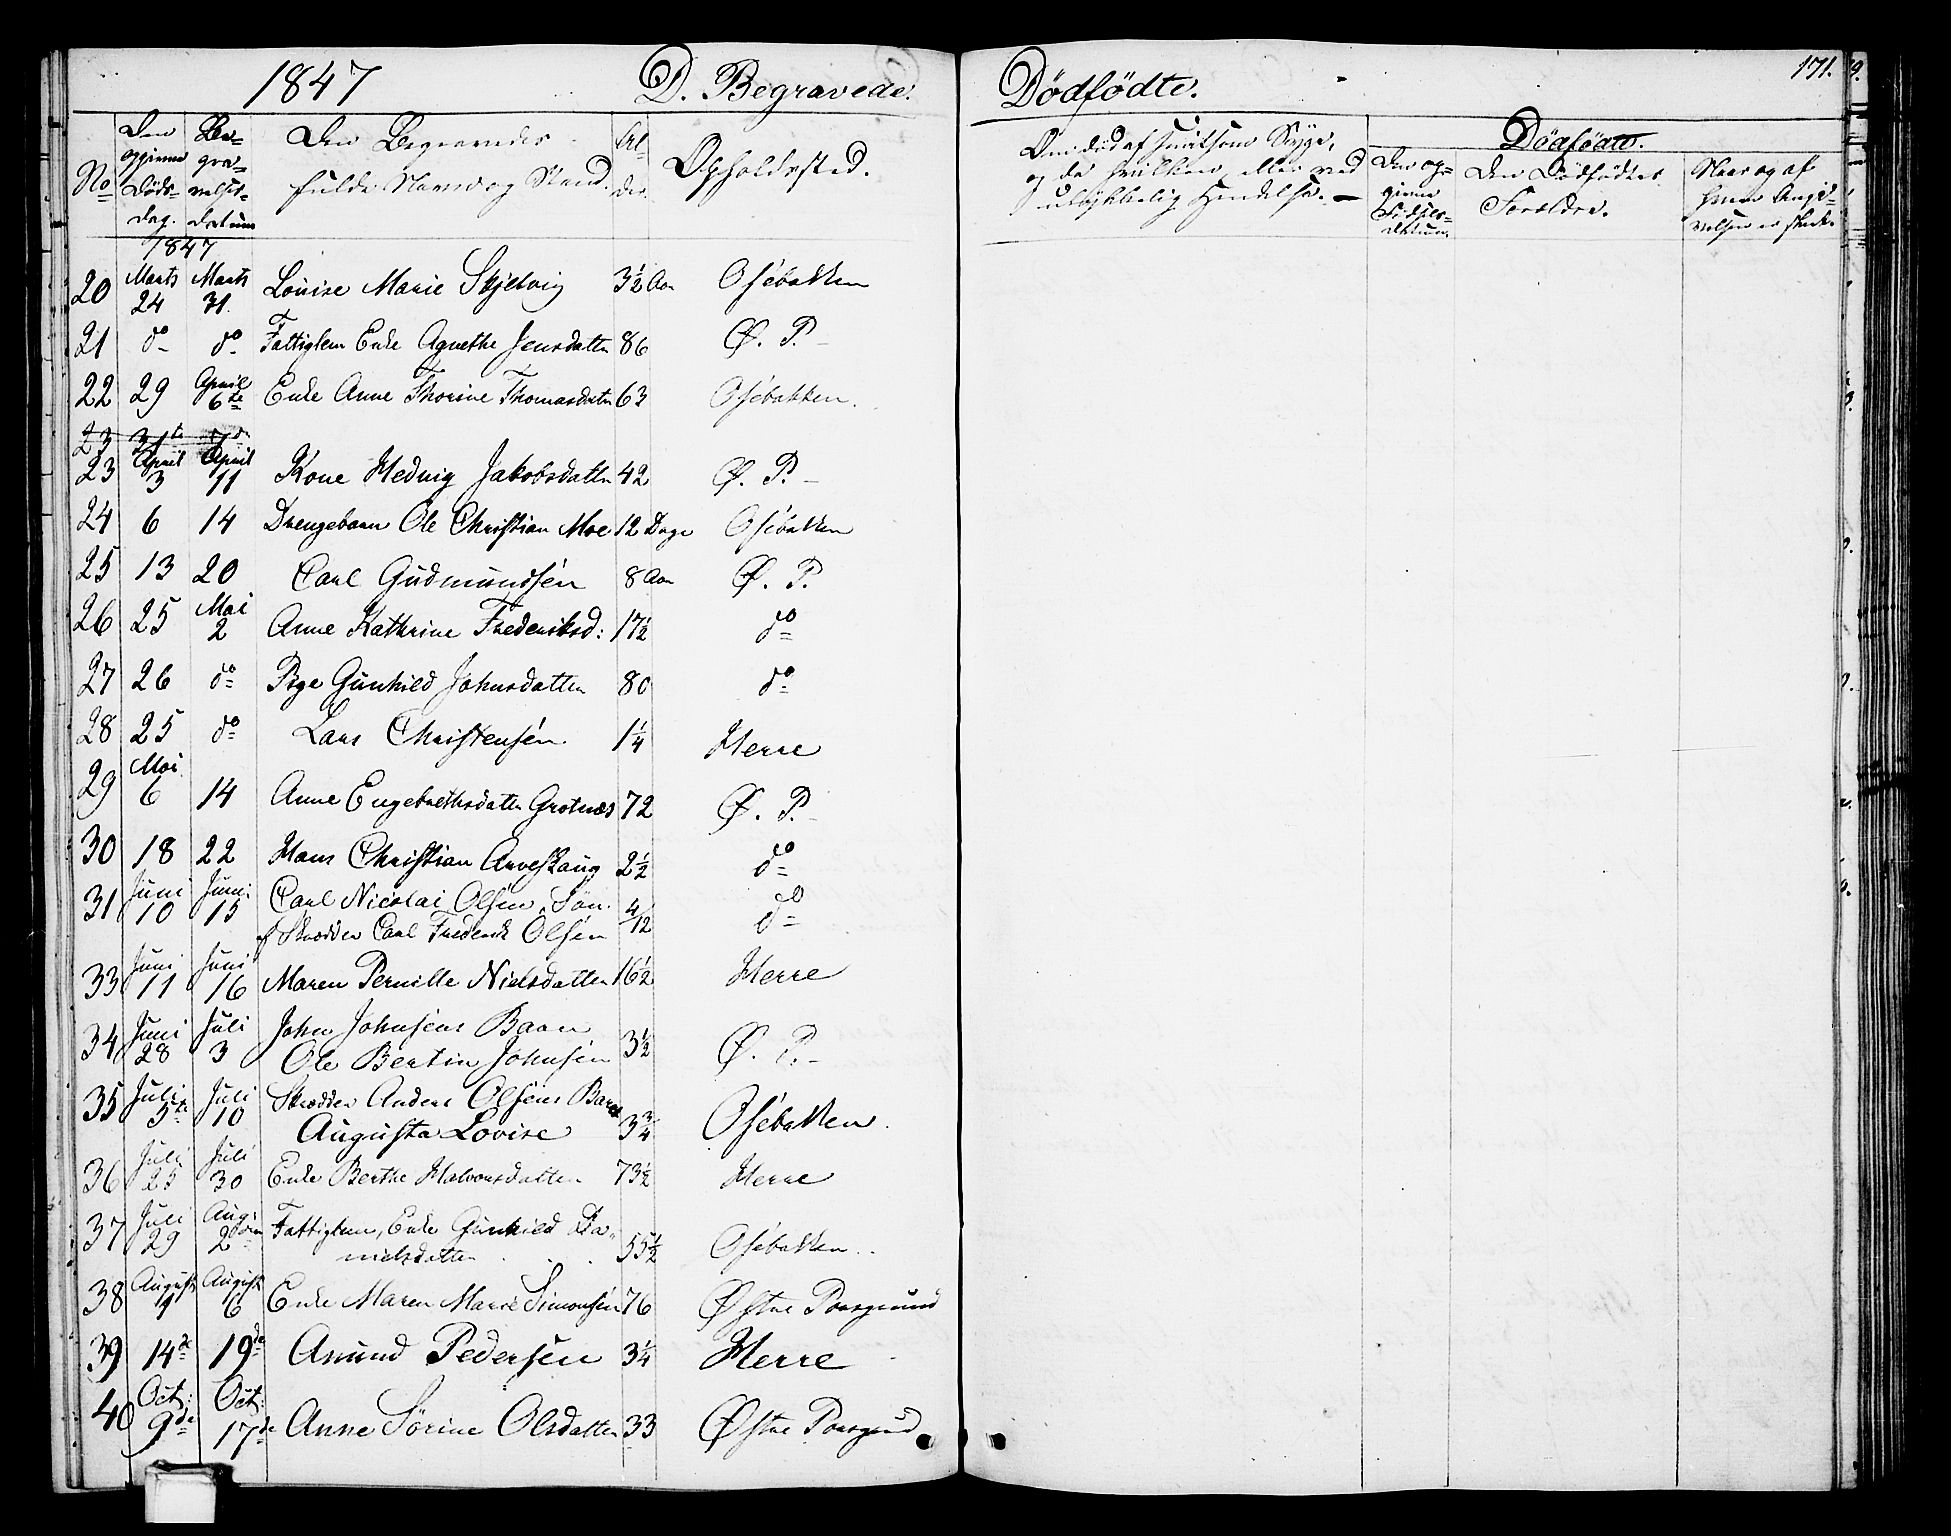 1847 D. Begravede. Dödfödte. 171.
No Den opgivne Døds-dag. Be-gra-velses-datum Den Begravedes fulde Navn og Stand. Al-der. Opholdsted. Om død af smitsom Syge, og da hvilken, eller ved ulykkelig Hændelse. Dödfödte. Den op-givne Födsels-datum. Den Dödfödtes Forældre. Naar og af hvem Angi-velsen er skeet.
1847
20 Marts 24 Marts 31. Louise Marie Skjelvig 3½ Aar Osebakken
21 do do Fattiglem Enke Agnethe Jensdatter 86 Ø. P.
22 29 April 6te Enke Anne Thorine Thomasdatr 63 Osebakken.
23 31te
23 April 3 April 11 Kone Hedvig Jakobsdatter 42 Ø. P.
24 6 14 Drengebarn Ole Christian Moe 12 Dage Osebakken
25 13 20 Carl Gudmundsen 8 Aar Ø. P.
26 25 Mai 2 Anne Kathrine Frederiksd: 17½ do
27 26 do Pige Gunhild Johnsdatter 80 do
28 25 do Lars Christensen 1¼ Herre
29 Mai 6 14 Anne Engebrethsdatter Grotnæs 72 Ø. P.
30 18 22 Hans Christian Arveskaug 2½ do
31 Juni 10 Juni 15 Carl Nicolai Olsen, Søn
af Skrædder Carl Frederik Olsen 4/12 do
33 Juni 11 Juni 16 Maren Pernille Nielsdatter 16½ Herre
34 Juni 28 Juli 3 John Johnsens Barn
Ole Bertin Johnsen 3½ Ø. P.
35 Juli 5te Juli 10 Skrædder Anders Olsens Barn
Augusta Lovise 3¾ Osebakken.
36 Juli 25 Juli 30 Enke Berthe Halvorsdatter 73½ Herre
37 Juli 29 Aug: 2den Fattiglem, Enke Gunhild Da-
nielsdatter 55½ Osebakken
38 August 1 August 6 Enke Maren Marie Simonsen 76 Østre Porsgrund
39 14de 19de Amund Pedersen 3¼ Herre
40 Oct: 9de Oct: 17de Anne Sörine Olsdatter 33 Østre Porsgrund